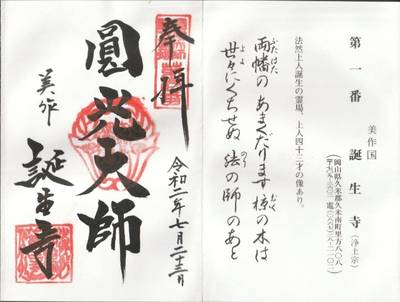 第一番 誕生寺 (浄土宗)
美作国
岡山県久米郡久米南町里方八〇八
法然上人誕生の霊場、上人四十三才の像あり。
両幡の あまくだります 椋の木は
ふたはた
むく
世々にくちせぬ 法の師のあと
よよ
のり
奉拝
圓光天師
美作
誕生寺
令和二年七月二十三日